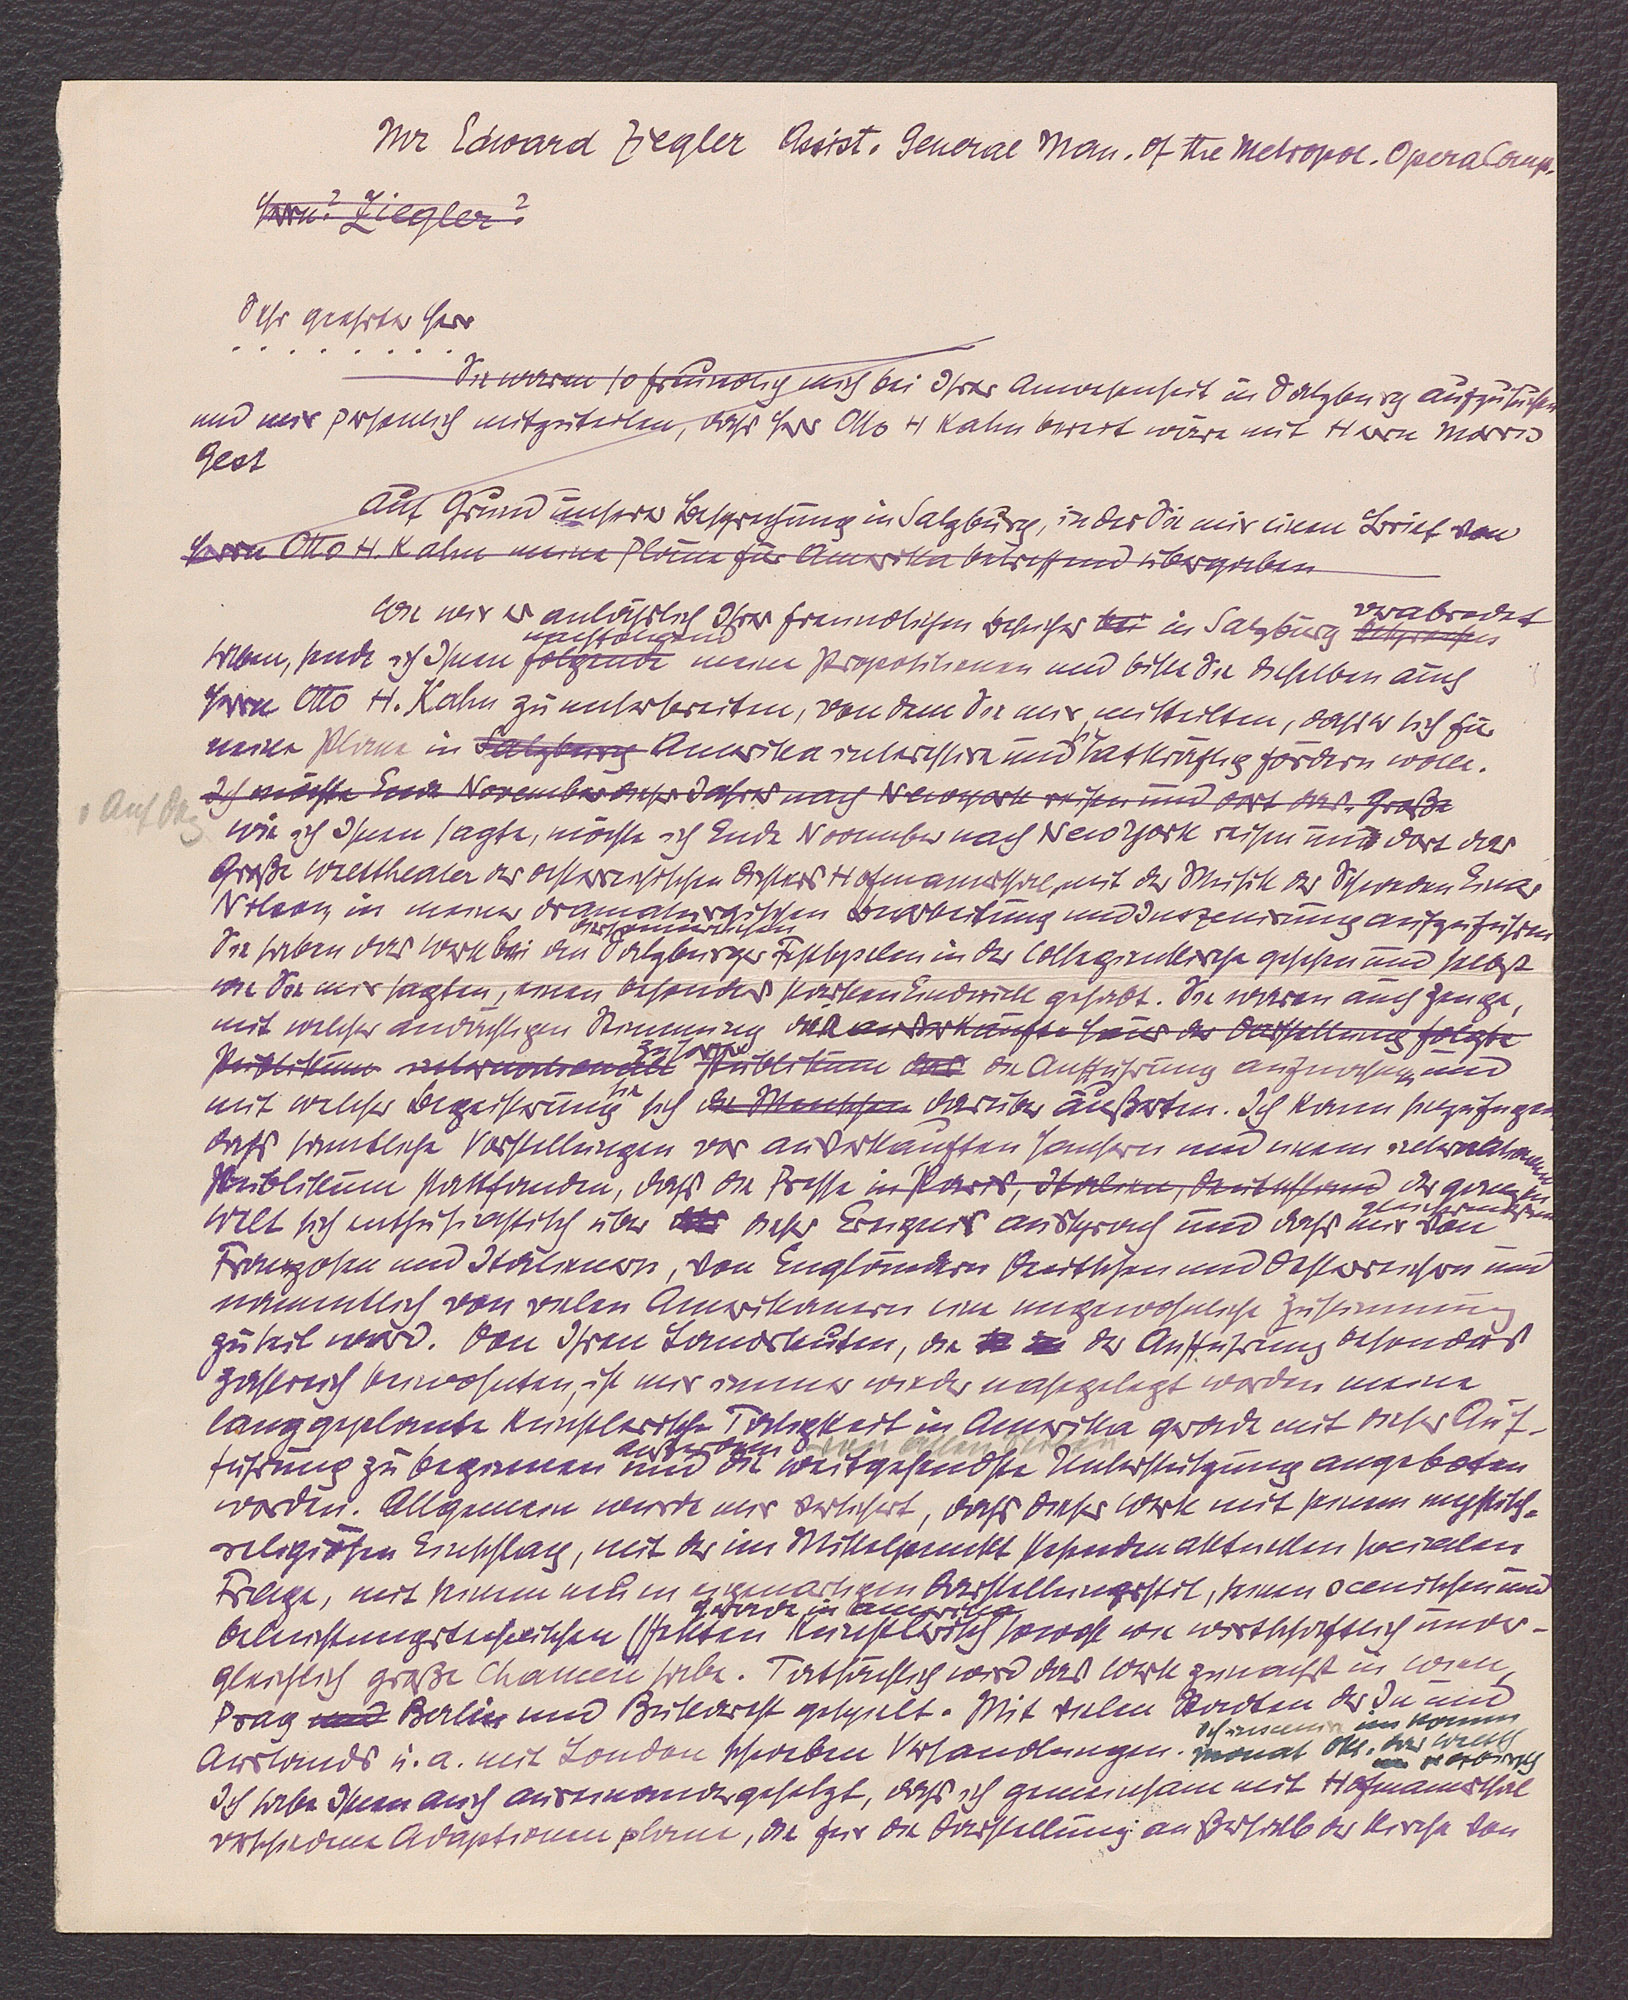 Mr Edward Ziegler Assist. General Man. of the Metropol. Opera Comp.
Herrn? Ziegler?
Sehr geehrter Herr
. . . . . . . .
Sie waren so freundlich mich bei Ihrer Anwesenheit in Salzburg aufzusuchen
und mir persönlich mitzuteilen, dass Herr Otto H Kahn bereit wäre mit Herrn Morris
Gest
Auf Grund unserer Besprechung in Salzburg, in der Sie mir einen Brief von
Herrn Otto H. Kahn meine Pläne für Amerika betreffend übergaben
Wie wir es anlässlich Ihres freundlichen Besuches bei in Salzburg verabredet
besprochen
nachfolgend
haben, sende ich Ihnen folgende meine Propositionen und bitte Sie dieselben auch
Herrn Otto H. Kahn zu unterbreiten, von dem Sie mir mitteilten, dass er sich für
meine Pläne in Salzburg Amerika interessire und sie tatkräftig fördern wolle.
Auf
Ich möchte Ende November dieses Jahres nach Newyork reisen und dort das Große
Wie ich Ihnen sagte, möchte ich Ende November nach New York reisen und dort das
Große Welttheater des österreichischen Dichters Hofmannsthal, mit der Musik des Schweden Einar
Nilson, in meiner dramaturgischen Bearbeitung und Inszenirung aufzuführen
Sie haben das Werk bei den Salzburger Festspielen in der Collegienkirche gesehen und selbst
wie Sie mir sagten, einen besonders starken Eindruck gehabt. Sie waren auch Zeuge,
mit welcher andächtigen Stimmung das ausverkaufte Haus der Darstellung folgte
Publikum internationale Publikum das die Aufführung aufnahm und
mit welcher Begeisterung sie sich die Menschen darüber äußerten. Ich kann hinzufügen
dass sämtliche Vorstellungen vor ausverkauften Häusern und einem internationalen
Publikum stattfanden, dass die Presse in Paris, Italien, Deutschland der ganzen
Welt sich enthusiastisch über das dieses Ereignis aussprach und dass mir von
Franzosen und Italienern, von Engländern Deutschen und Oesterreichern und
namentlich von vielen Amerikanern eine ungewöhnliche Zustimmung
zuteil ward. Von Ihren Landsleuten, die der Aufführung besonders
zahlreich beiwohnten, ist mir immer wieder nahegelegt worden meine
lang geplante künstlerische Tätigkeit in Amerika gerade mit dieser Auf-
außerdem von allen Seiten
führung zu beginnen und die weitgehendste Unterstützung angeboten
worden. Allgemein wurde mir versichert, dass dieses Werk mit seinem mystisch-
religiösen Einschlag, mit der im Mittelpunkt stehenden aktuellen socialen
Frage, mit seinem neuen eigenartigen Darstellungsstil, seinen scenischen und
gerade in Amerika
beleuchtungstechnischen Effekten künstlerisch sowohl wie wirtschaftlich unver-
gleichlich große Chancen habe. Tatsächlich wird das Werk zunächst in Wien,
Prag und Berlin und Bukarest gespielt. Mit vielen Städten des In und
Auslands u. a. mit London schweben Verhandlungen.
Ich habe Ihnen auch auseinandergesetzt, dass ich gemeinsam mit Hofmannsthal
verschiedene Adaptionen plane, die für die Darstellung außerhalb der Kirche von